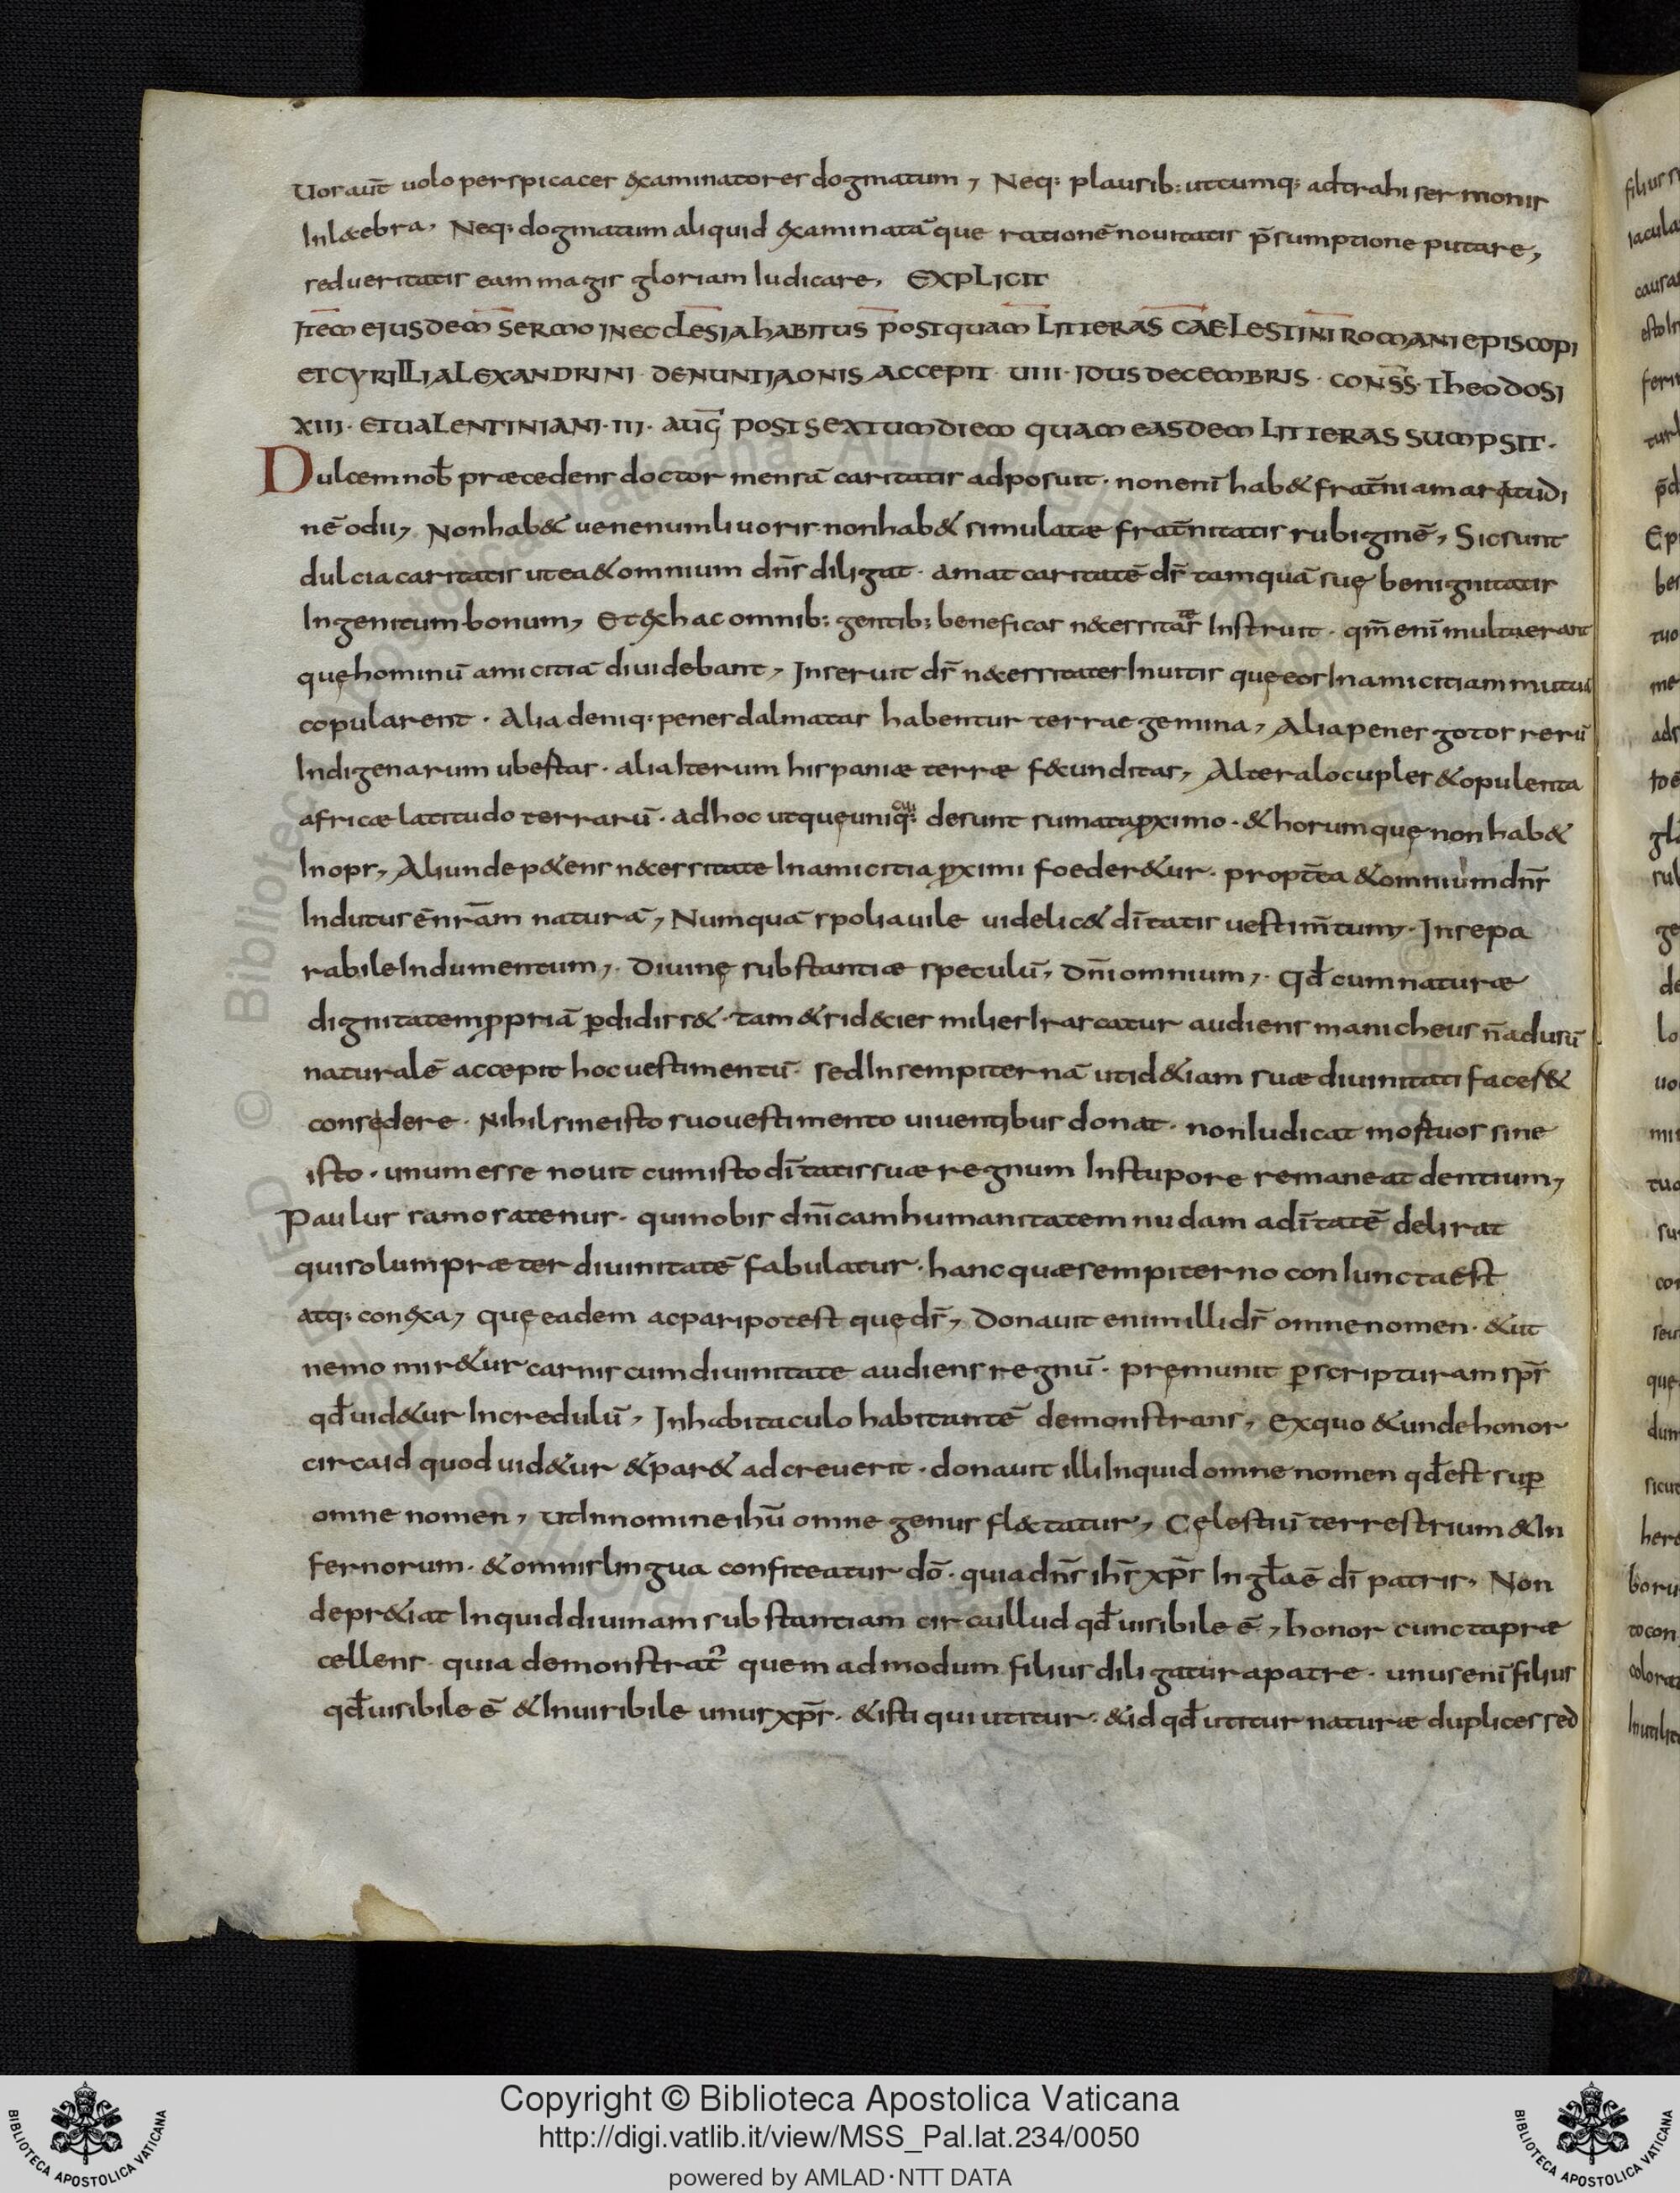 Uos aut̄ uolo perspicaces examinatores dogmatum, Neq; plausib; utcumq; adtrahi sermonis
Inlecebra, Neq; dogmatum aliquid examinatā que rationē nouitatis p̄sumptione putare,
sed ueritatis eam magis gloriam Iudicare, EXPLICIT
ITEM EIUSDEM SERMO IN ECCLESIA HABITUS POSTQUAM LITTERAS CAELESTINI ROMANI EPISCOPI
ET CYRILLI ALEXANDRINI DENUNTIAONIS ACCEPIT · UIII · IDUS DECEMBRIS · CONSS̄ · THEODOSI
XIII · ET UALENTINIANI · III · AUG̅ POST SEXTUM DIEM QUAM EASDEM LITTERAS SUMPSIT ·
Dulcem nob̄ præcedens doctor mensā caritatis adposuit · non enī hab& frat̄ni amaritudi
nē odii, Non hab& uenenum liuoris · non hab& simulatæ frat̄nitatis rubiginē, Sic sunt
dulcia caritatis ut ea & omnium dn̄s diligat · amat caritatē ds̄ tamquā suę benignitatis
Ingenitum bonum, Et ex hac omnib; gentib; beneficas n&cessitates Instruit · qm̄ enī multa erant
quę hominū amicitiā diuidebant, Inseruit ds̄ n&cessitates Inuitis quę eos In amicitiam mutuā
copularent · Alia deniq; penes dalmatas habentur terrae gemina, Alia penes gotos rerū
Indigenarum ubestas · alia Iterum hispaniæ terræ f&cunditas, Altera locuples & opulenta
africæ latitudo terrarū · Adhoc ut quę uniq; cui desunt sumat a p̱ximo · & horum quę non hab&
Inops, Aliunde p&ens n&cessitate In amicitia p̱ximi foeder&ur · propt̄ea & omnium dn̄s
Indutus ē nr̄am naturā, Numquā spoliauile uidelic& dītatis uestim̄tum, · Insepa
rabile Indumentum, · Diuinę substantiæ speculū, Dn̄i omnium, · Qd̄ cum naturæ
dignitatem p̱priā ꝑdidiss& · tam&si decies milies Irascatur audiens manicheus n̄ ad usū
naturalē accepit hoc uestimentū · sed In sempiternā ut id &iam suæ diuinitati faces&
consedere · Nihil sine isto suo uestimento uiuentibus donat · non Iudicat mostuos sine
isto · unum esse nouit cum isto dītatis suæ regnum In stupore remaneat dentium,
Paulus samosatenus · qui nobis dn̄icam humanitatem nudam a dītatē delirat
qui solum præter diuinitatē fabulatur · hanc quæ sempiterno coniuncta est
atq; conexa, quę eadem ac pari potest quę ds̄, Donauit enim illi ds̄ omne nomen · & ut
nemo mir&ur carnis cum diuinitate audiens regnū · pręmunit ꝑ scripturam sps̄
qd̄ uid&ur Incredulū, In habitaculo habitantē demonstrans, Ex quo & unde honor
circa id quod uid&ur & par& adcreuerit · donauit illi Inquid omne nomen qd̄ est suꝑ
omne nomen, Ut In nomine ihū omne genus fl&ctatur, Cęlestiū terrestrium & In
fernorum · & omnis lingua confiteatur dō · quia dn̄s ihs̄ xp̄s In gl̄a ē dī patris, Non
depr&iat Inquid diuinam substantiam circa illud qd̄ uisibile ē, honor cuncta præ
cellens · quia demonstrat᷒ quem admodum filius diligatur a patre · unus enī filius
qd̄ uisibile ē & Inuisibile unus xp̄s · & isti qui utitur · & id qd̄ utitur naturæ duplices sed
Copyright © Biblioteca Apostolica Vaticana
http://digi.vatlib.it/view/MSS_Pal.lat.234/0050
powered by AMLAD·NTT DATA